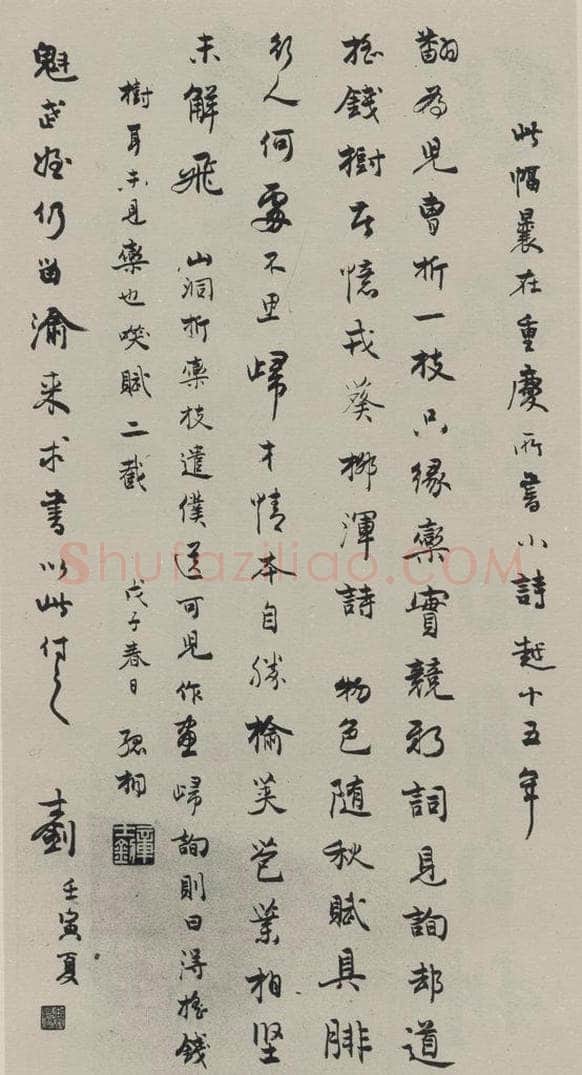 此幅曩在重慶所書小詩越十五年
翻為兒曹折一枝只緣欒實競新詞見詢却道
搖錢樹憶戎葵柳渾詩 物色随秋賦具腓
行人何處不思歸才情本自勝榆莢相堅
未解飛 山洞折欒枝遣僕送可見作畫歸詢則曰得搖錢
樹耳未見欒也賦二截 戊子春日 孤桐
魁武姪仍留渝来求書以此付之 釗 壬寅夏
章士釗
Shufaziliao.COM